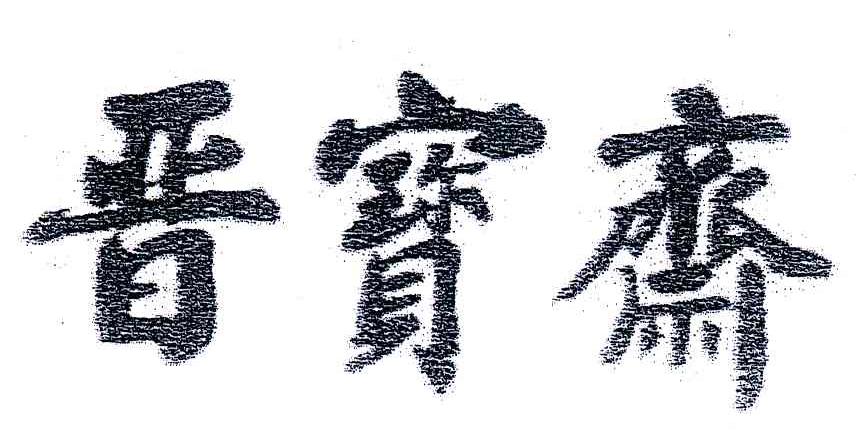 晋寶齋